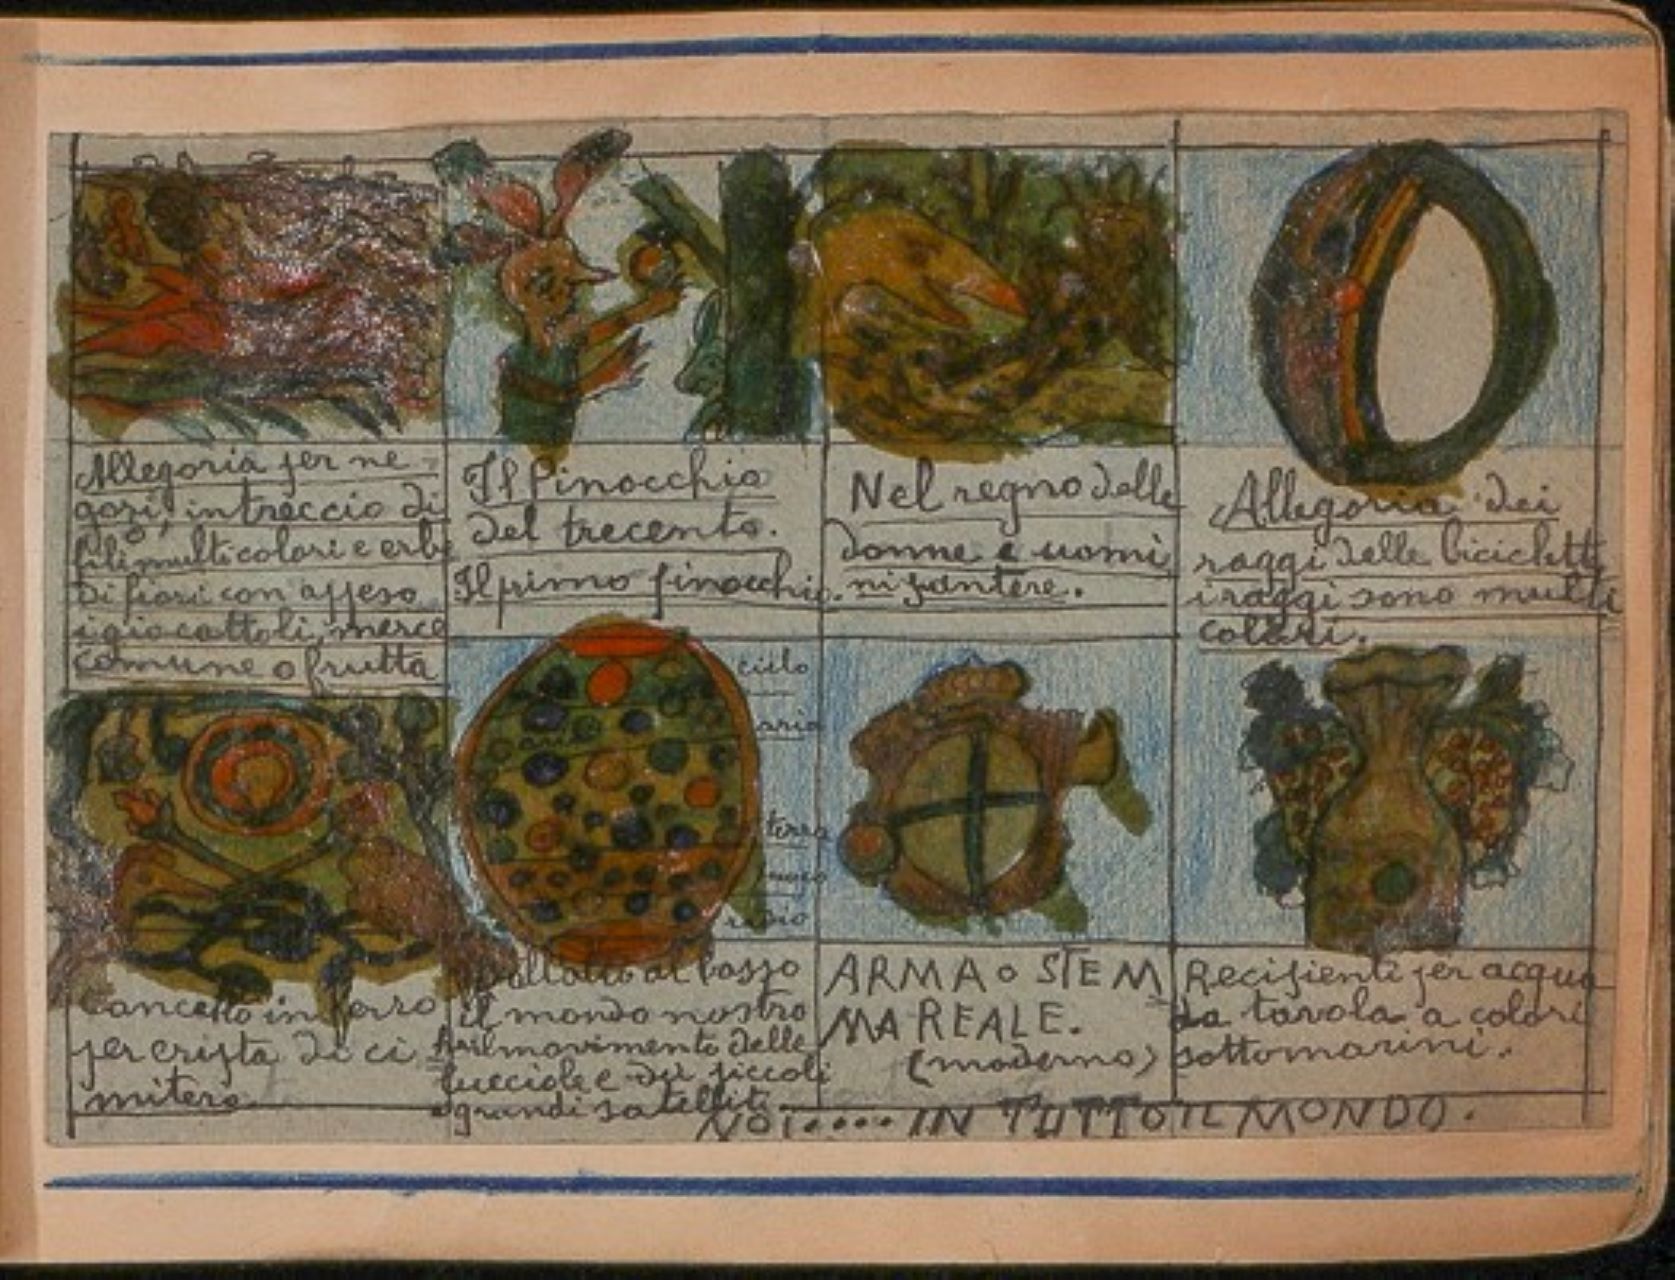 Allegoria per ne-
gozi, intreccio di
fili multicolori e erbe
di fiori con appeso
i giocattoli, merce
comune o frutta
Il Pinocchio
del trecento.
Il primo pinocchio.
Nel regno delle
donne e uomi
ni pantere.
Allegoria dei
raggi delle biciclette
i raggi sono multi
colori.
Cancello in ferro
per cripta di ci
mitero
cielo
aria
terra
fuoco
radio
dall'alto al basso
il mondo nostro
il movimento delle
lucciole e dei piccoli
grandi satelliti
ARMA o STEM
MA REALE.
(moderno)
Recipienti per acqua
da tavola a colori
sottomarini.
NOI..... IN TUTTO IL MONDO.